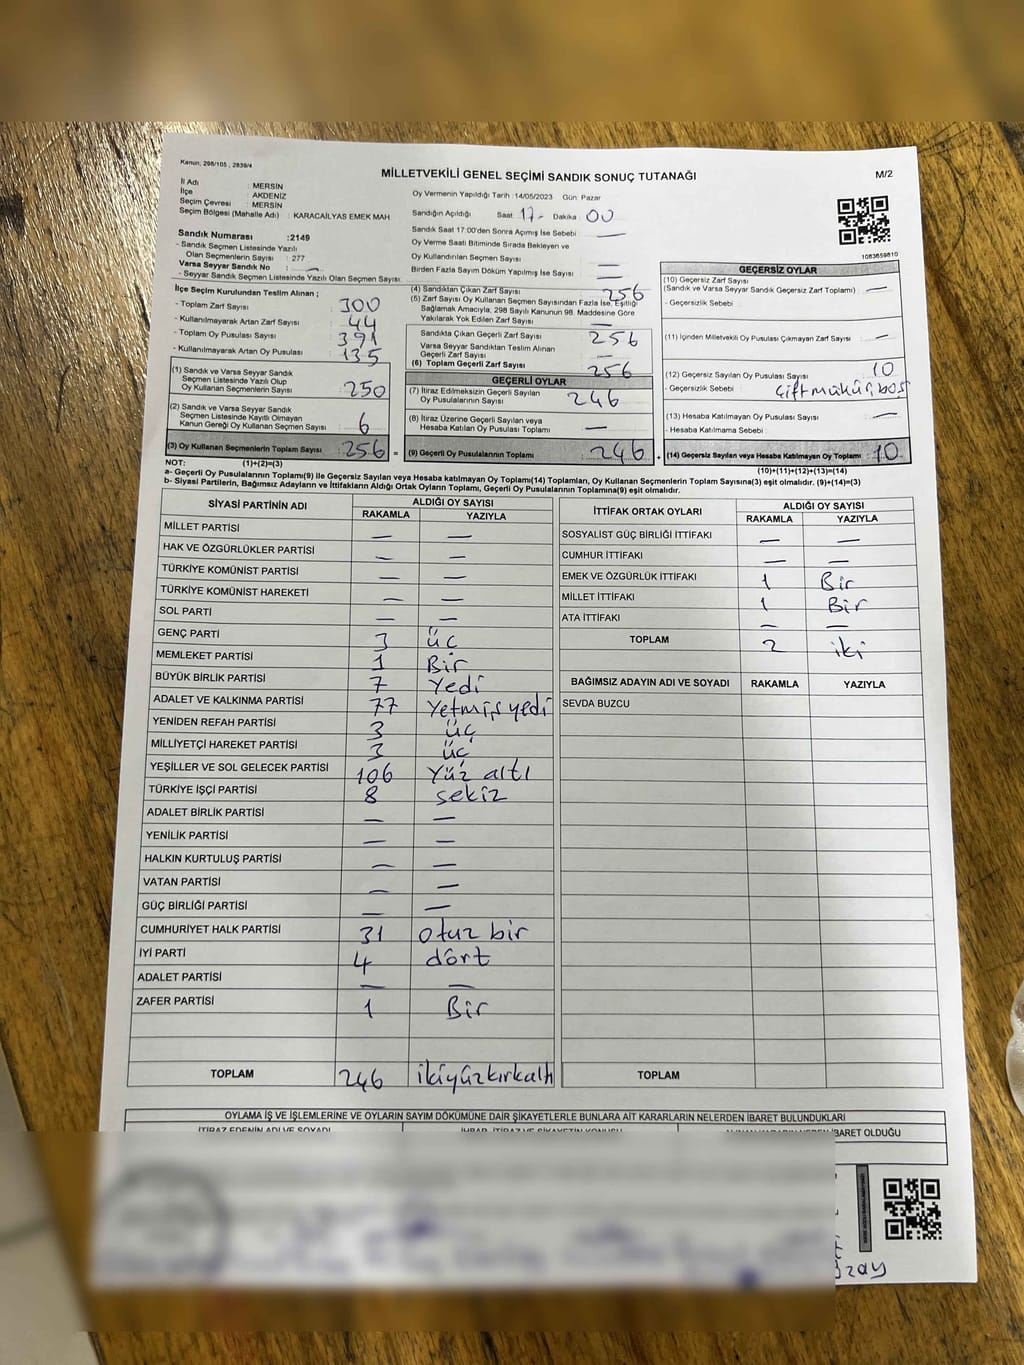 Kanun: 298/105 , 2839/4
MİLLETVEKİLİ GENEL SEÇİMİ SANDIK SONUÇ TUTANAĞI
M/2
İl Adı : MERSİN
İlçe : AKDENİZ
Seçim Çevresi : MERSİN
Seçim Bölgesi (Mahalle Adı) : KARACAİLYAS EMEK MAH
Sandık Numarası :2149
- Sandık Seçmen Listesinde Yazılı
Olan Seçmenlerin Sayısı : 277
Varsa Seyyar Sandık No : —
- Seyyar Sandık Listesinde Yazılı Olan Seçmen Sayısı
İlçe Seçim Kurulundan Teslim Alınan ;
- Toplam Zarf Sayısı : 300
- Kullanılmayarak Artan Zarf Sayısı : 44
- Toplam Oy Pusulası Sayısı : 391
- Kullanılmayarak Artan Oy Pusulası : 135
(1) Sandık ve Varsa Seyyar Sandık
Seçmen Listesinde Yazılı Olup
Oy Kullanan Seçmenlerin Sayısı : 250
(2) Sandık ve Varsa Seyyar Sandık
Seçmen Listesinde Kayıtlı Olmayan
Kanun Gereği Oy Kullanan Seçmen Sayısı : 6
(3) Oy Kullanan Seçmenlerin Toplam Sayısı : 256 =
Oy Vermenin Yapıldığı Tarih :14/05/2023 Gün: Pazar
Sandığın Açıldığı Saat 17- Dakika 00
Sandık Saat 17:00'den Sonra Açımış İse Sebebi —
Oy Verme Saati Bitiminde Sırada Bekleyen ve
Oy Kullandırılan Seçmen Sayısı —
Birden Fazla Sayım Döküm Yapılmış İse Sayısı —
(4) Sandıktan Çıkan Zarf Sayısı : 256
(5) Zarf Sayısı Oy Kullanan Seçmen Sayısından Fazla İse, Eşitliği
Sağlamak Amacıyla, 298 Sayılı Kanunun 98. Maddesine Göre
Yakılarak Yok Edilen Zarf Sayısı —
Sandıkta Çıkan Geçerli Zarf Sayısı : 256
Varsa Seyyar Sandıktan Teslim Alınan
Geçerli Zarf Sayısı —
(6) Toplam Geçerli Zarf Sayısı : 256
GEÇERLİ OYLAR
(7) İtiraz Edilmeksizin Geçerli Sayılan
Oy Pusulalarının Sayısı : 246
(8) İtiraz Üzerine Geçerli Sayılan veya
Hesaba Katılan Oy Pusulası Toplamı : —
(9) Geçerli Oy Pusulalarının Toplamı : 246 +
1083659810
GEÇERSİZ OYLAR
(10) Geçersiz Zarf Sayısı
(Sandık ve Varsa Seyyar Sandık Geçersiz Zarf Toplamı) : —
- Geçersizlik Sebebi :
(11) İçinden Milletvekili Oy Pusulası Çıkmayan Zarf Sayısı : —
(12) Geçersiz Sayılan Oy Pusulası Sayısı : 10
- Geçersizlik Sebebi : Çiftmükü,boş
(13) Hesaba Katılmayan Oy Pusulası Sayısı : —
- Hesaba Katılmama Sebebi :
(14) Geçersiz Sayılan veya Hesaba Katılmayan Oy Toplamı : 10
NOT: (1)+(2)=(3) (10)+(11)+(12)+(13)=(14)
a- Geçerli Oy Pusulalarının Toplamı(9) ile Geçersiz Sayılan veya Hesaba katılmayan Oy Toplamı(14) Toplamları, Oy Kullanan Seçmenlerin Toplam Sayısına(3) eşit olmalıdır. (9)+(14)=(3)
b- Siyasi Partilerin, Bağımsız Adayların ve İttifakların Aldığı Ortak Oyların Toplamı, Geçerli Oy Pusulalarının Toplamına(9) eşit olmalıdır.
SİYASİ PARTİNİN ADI ALDIĞI OY SAYISI
RAKAMLA YAZIYLA
MİLLET PARTİSİ — —
HAK VE ÖZGÜRLÜKLER PARTİSİ — —
TÜRKİYE KOMÜNİST PARTİSİ — —
TÜRKİYE KOMÜNİST HAREKETİ — —
SOL PARTİ — —
GENÇ PARTİ 3 üç
MEMLEKET PARTİSİ 1 Bir
BÜYÜK BİRLİK PARTİSİ 7 Yedi
ADALET VE KALKINMA PARTİSİ 77 Yetmiş yedi
YENİDEN REFAH PARTİSİ 3 üç
MİLLİYETÇİ HAREKET PARTİSİ 3 üç
YEŞİLLER VE SOL GELECEK PARTİSİ 106 Yüz altı
TÜRKİYE İŞÇİ PARTİSİ 8 sekiz
ADALET BİRLİK PARTİSİ — —
YENİLİK PARTİSİ — —
HALKIN KURTULUŞ PARTİSİ — —
VATAN PARTİSİ — —
GÜÇ BİRLİĞİ PARTİSİ — —
CUMHURİYET HALK PARTİSİ 31 otuz bir
İYİ PARTİ 4 dört
ADALET PARTİSİ — —
ZAFER PARTİSİ 1 Bir
TOPLAM 246 ikiyüzkırkaltı
İTTİFAK ORTAK OYLARI ALDIĞI OY SAYISI
RAKAMLA YAZIYLA
SOSYALİST GÜÇ BİRLİĞİ İTTİFAKI — —
CUMHUR İTTİFAKI — —
EMEK VE ÖZGÜRLÜK İTTİFAKI 1 Bir
MİLLET İTTİFAKI 1 Bir
ATA İTTİFAKI — —
TOPLAM 2 iki
BAĞIMSIZ ADAYIN ADI VE SOYADI RAKAMLA YAZIYLA
SEVDA BUZCU
TOPLAM
OYLAMA İŞ VE İŞLEMLERİNE VE OYLARIN SAYIM DÖKÜMÜNE DAİR ŞİKAYETLERLE BUNLARA AİT KARARLARIN NELERDEN İBARET BULUNDUKLARI
İTİRAZ EDENİN ADI VE SOYADI
İBARET OLDUĞU